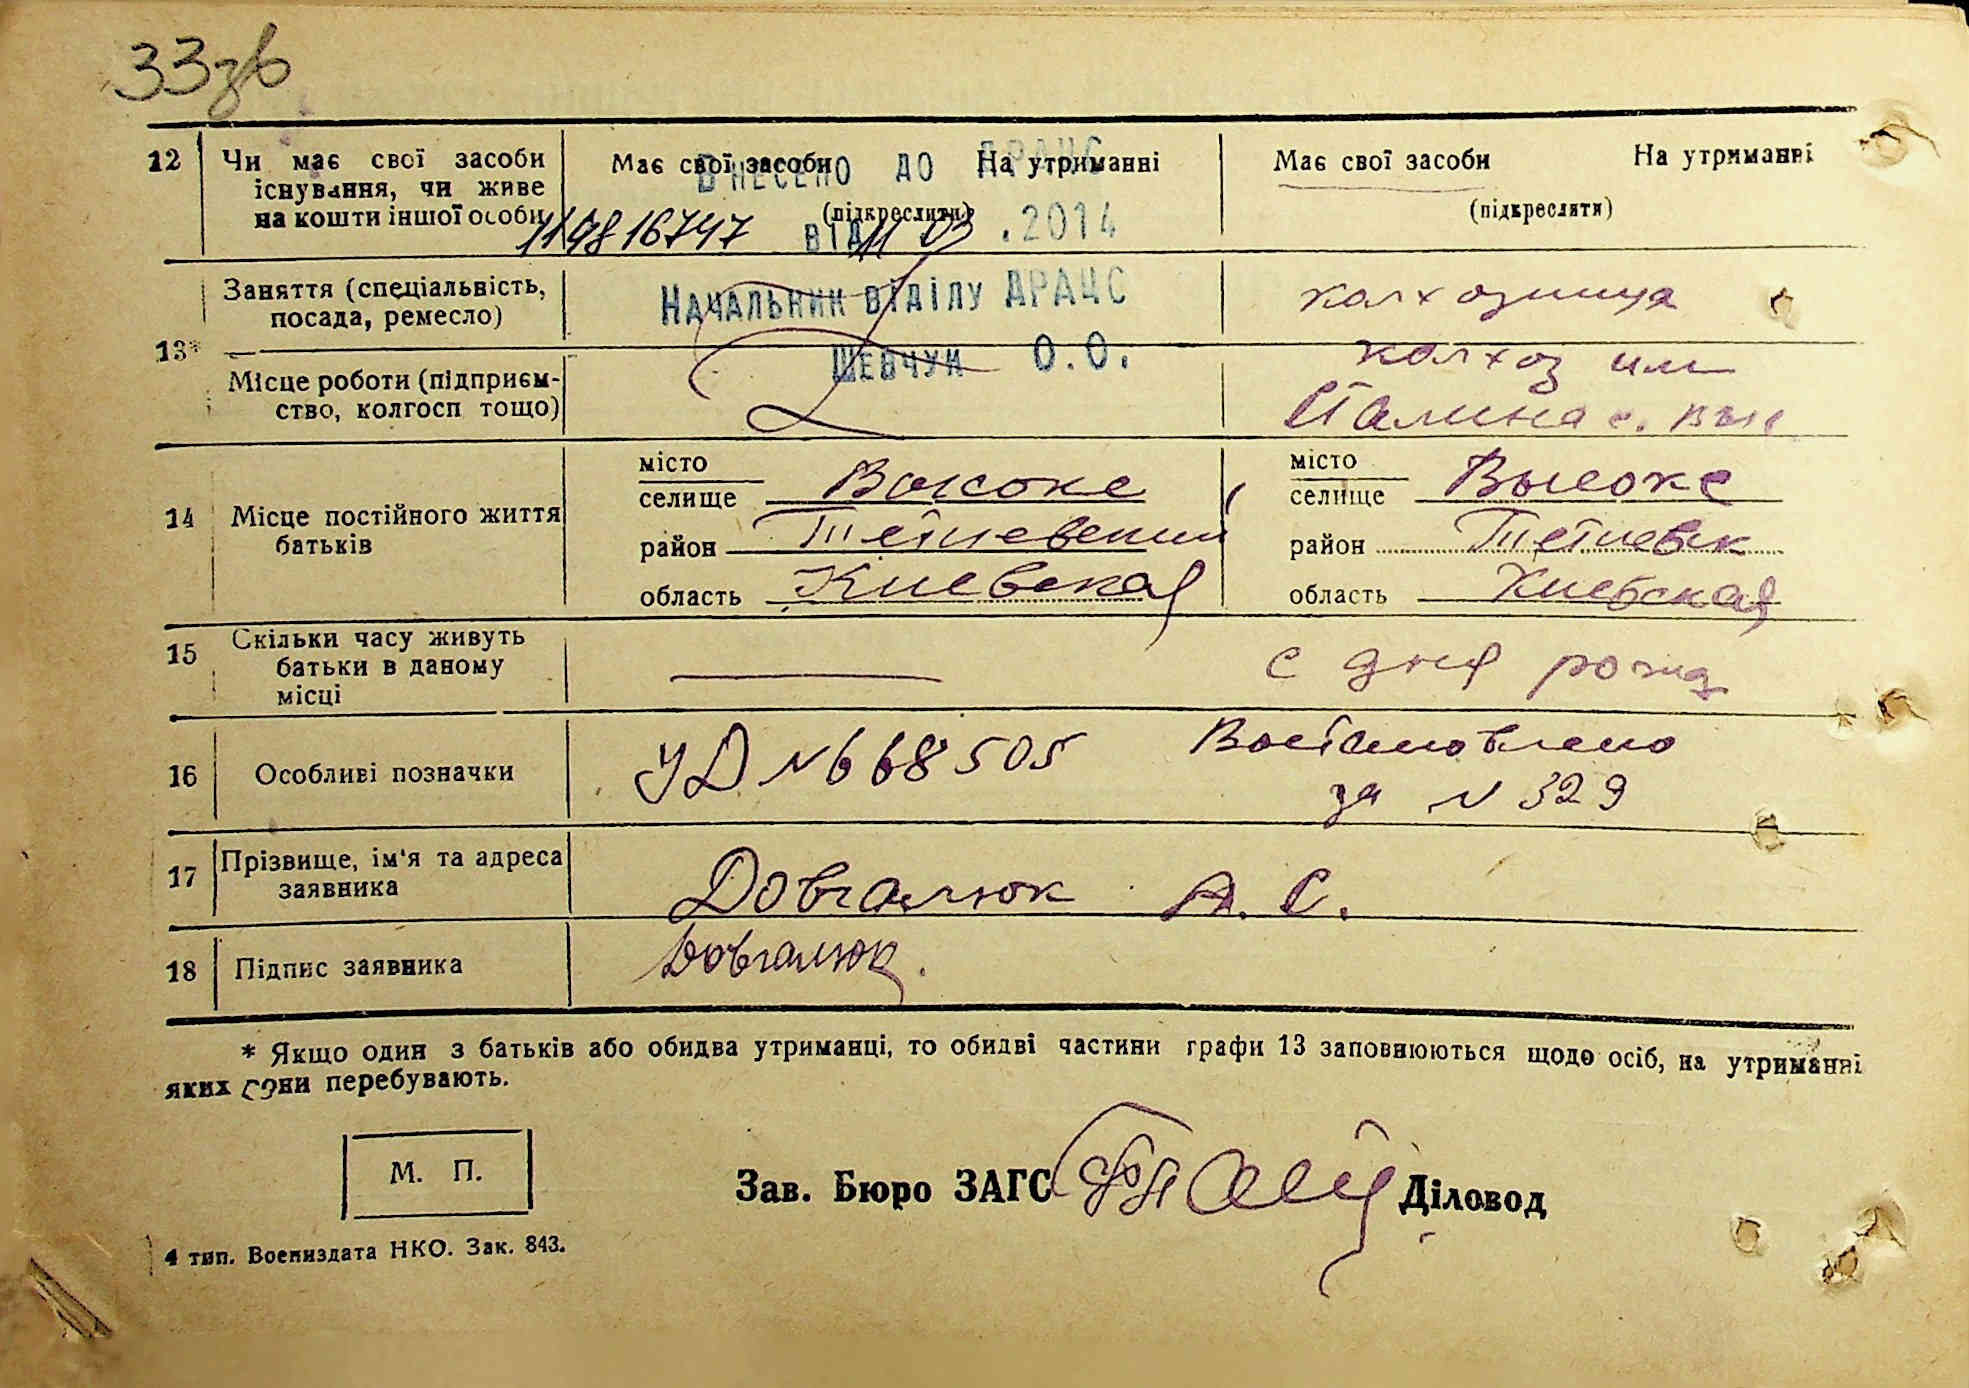 33зв
12 Чи має свої засоби існування, чи живе на кошти іншої особи
Має свої засоби На утриманні
(підкреслити)
Має свої засоби На утриманні
(підкреслити)
Внесено до ДРАЦС
1149816747 від 11 03 .2014
Начальник відділу ДРАЦС
Шевчук О.О.
13*
Заняття (спеціальність, посада, ремесло)
колхозница
Місце роботи (підприєм-
ство, колгосп тощо)
колхоз им
Сталина с. Выс
14 Місце постійного життя батьків
місто
селище Высоке
район Тетиевский
область Киевская
місто
селище Высоке
район Тетиевск
область Киевская
15 Скільки часу живуть
батьки в даному
місці
с дня рожд
16 Особливі позначки
УД N 668505 Востановлено
за N 329
17 Прізвище, ім'я та адреса
заявника
Довгалюк А. С.
18 Підпис заявника
Довгалюк.
* Якщо один з батьків або обидва утриманці, то обидві частини графи 13 заповнюються щодо осіб, на утриманні
яких вони перебувають.
М. П.
Зав. Бюро ЗАГС Діловод
4 тип. Воениздата НКО. Зак. 843.